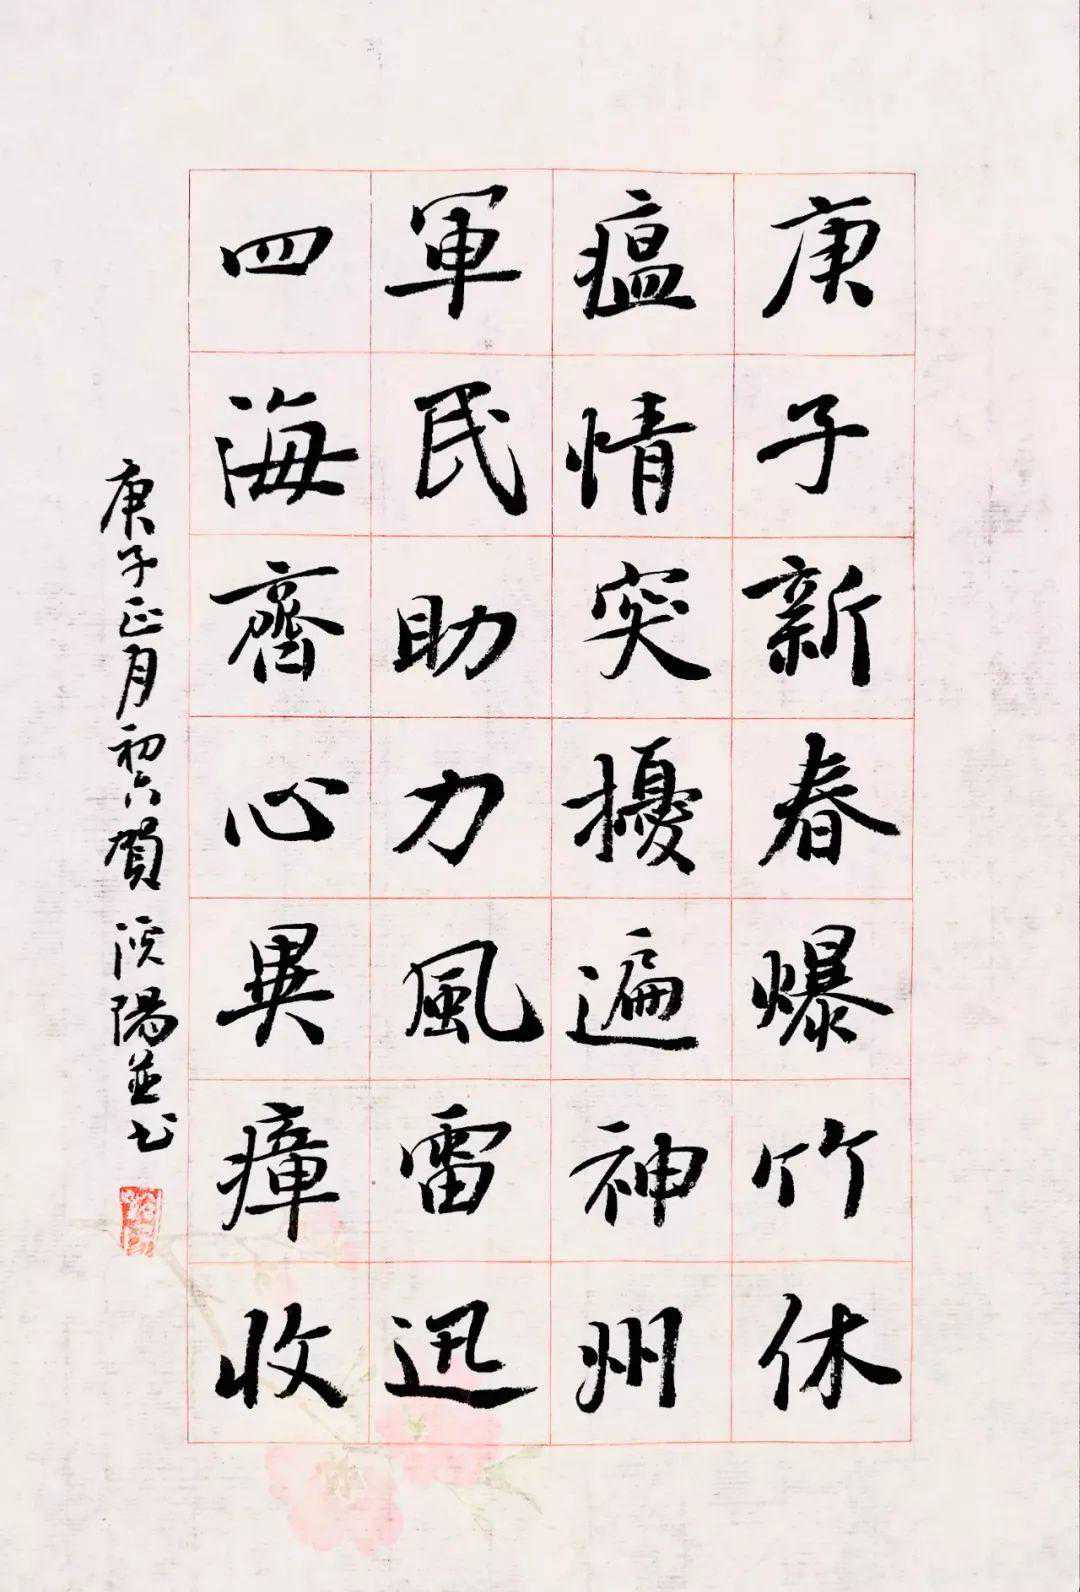 庚子新春爆竹休
瘟情突擾遍神州
軍民助力風雷迅
四海齊心異瘴收
庚子正月初六賀陽並书